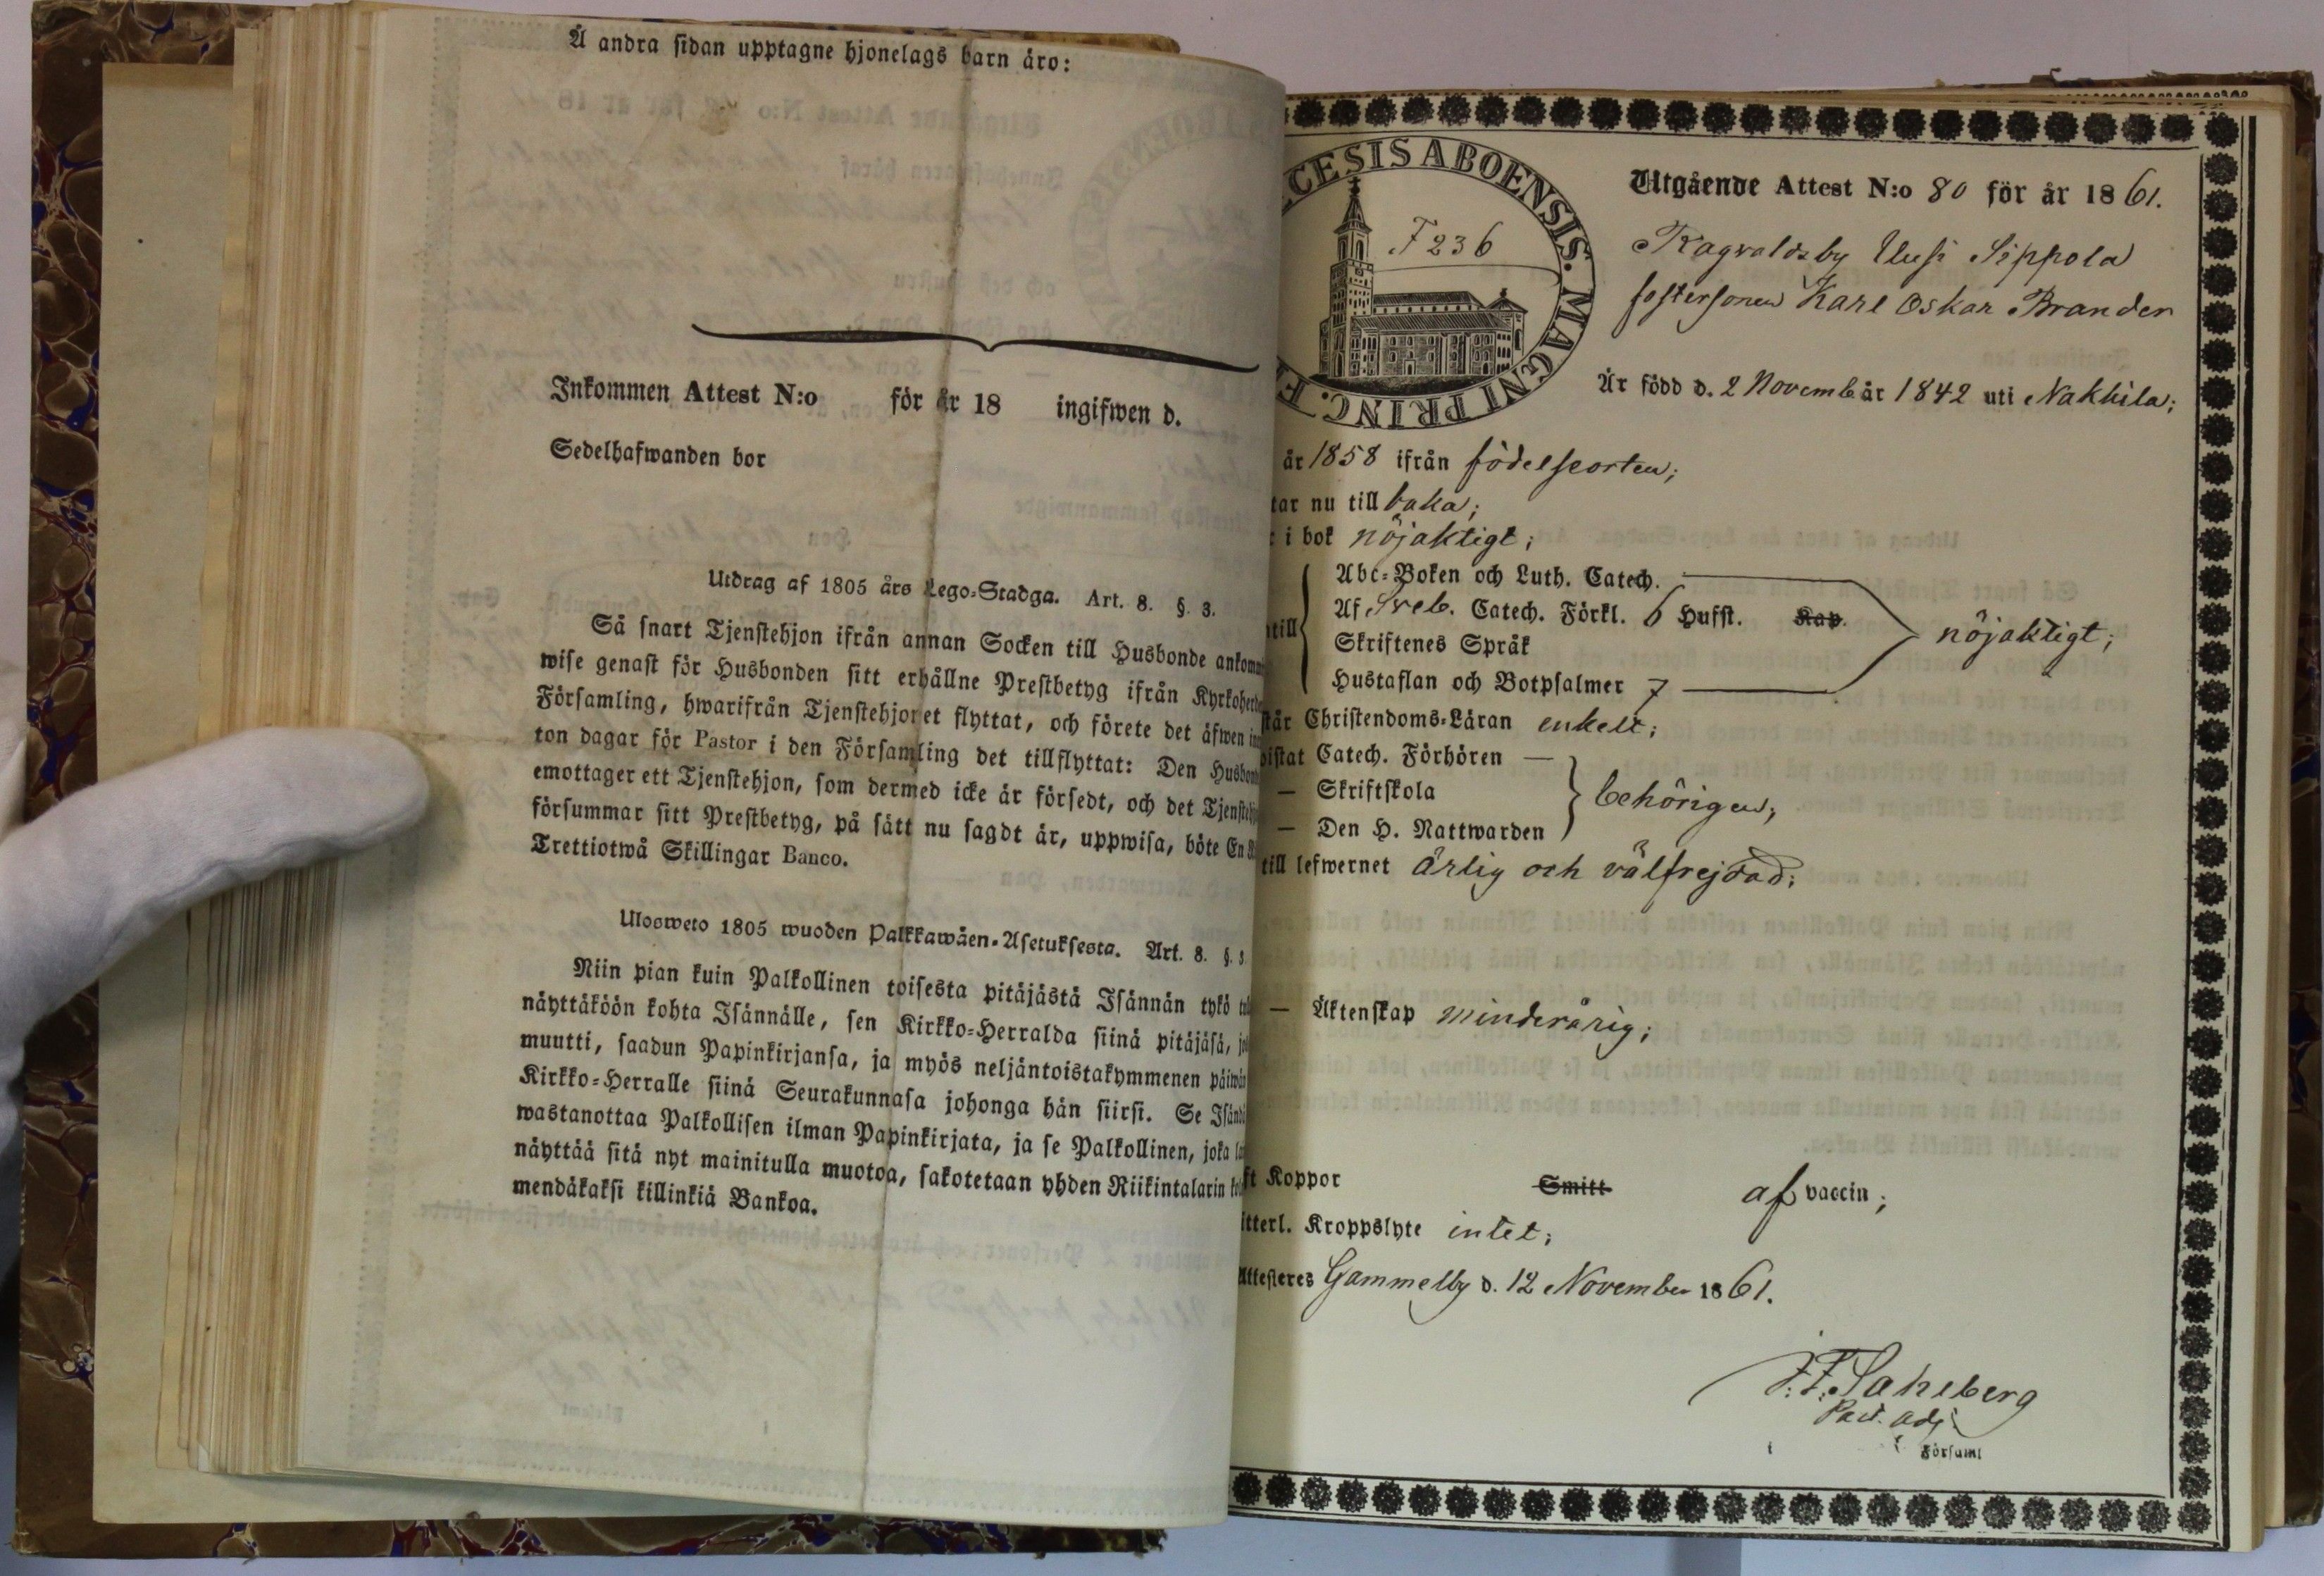 Å andra sidan upptagne hjonelags barn äro:
Inkommen Attest N:o för år 18 ingifwen d.
Sedelhafwanden bor
Utdrag af 1805 års Lego-Stadga. Art. 8. §. 3.
Så snart Tjenstehjon ifrån annan Socken till Husbonde
wise genast för Husbonden sitt erhållne Prestbetyg ifrån
Församling, hwarifrån Tjenstehjonet flyttat, och förete det äfwen
ton dagar för Pastor i den Församling det tillflyttat: Den
emottager ett Tjenstehjon, som dermed icke är försedt, och det
försummar sitt Prestbetyg, på sätt nu sagdt är, uppwisa, böte En
Trettiotwå Skillingar Banco.
Ulosweto 1805 wuoden Palkkawäen-Asetuksesta. Art. 8. §. 3.
Niin pian kuin Palkollinen toisesta pitäjästä Isännän tykö
näyttäköön kohta Isännälle, sen Kirkko-Herralda siinä pitäjäsä,
muutti, saadun Papinkirjansa, ja myös neljäntoistakymmenen
Kirkko-Herralle siinä Seurakunnasa johonga hän siirsi. Se
wastanottaa Palkollisen ilman Papinkirjata, ja se Palkollinen, joka
näyttää sitä nyt mainitulla muotoa, sakotetaan yhden Riikintalarin
mendäkaksi killinkiä Bankoa.
CESIS ABOENSIS. MAGNI PRINC. F
F 236
Utgående Attest N:o 80 för år 1861.
Ragvaldsby Uusi Sippola
fostersonen Karl Oskar Brander
Är född d. 2 Novemb år 1842 uti Nakkila;
år 1858 ifrån födelseorten;
tar nu till baka;
i bok nöjaktigt;
Abc-Boken och Luth. Catech.
Af Sveb. Catech. Förkl. 6 Hufst. Kap.
till nöjaktigt;
Skriftenes Språk
Hustaflan och Botpsalmer 7
står Christendoms-Läran enkelt;
bistat Catech. Förhören —
— Skriftskola behörigen;
— Den H. Nattwarden
till lefwernet ärlig och välfrejdad;
— Äktenskap minderårig;
ft Koppor Smitt af vaccin;
itterl. Kroppslyte intet;
Attesteres Gammelby d. 12 November 1861.
J. F. Sahlberg
Past. adj.
i Församl